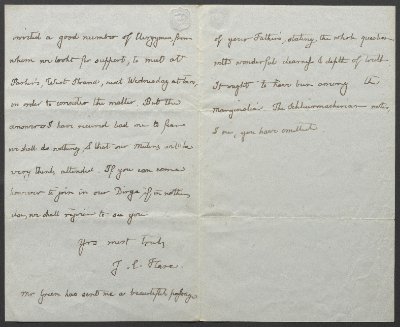 invited a good number of Clergymen from
whom we look for support, to meet at
Parker's, West Strand, next Wednesday at two,
in order to consider the matter. But the
answers I have received lead me to fear
we shall do nothing, & that our Meeting will be
very thinly attended. If you can come
tomorrow to join in our Dirge if in nothing
else, we shall rejoice to see you.
Yrs most truly
J. C. Hare.
Mr Green has sent me a beautiful passage
of your Father's, stating the whole question
with wonderful clearness & depth of truth.
It ought to have been among the
Marginalia. The Schleiermacherian note,
I see, you have omitted.